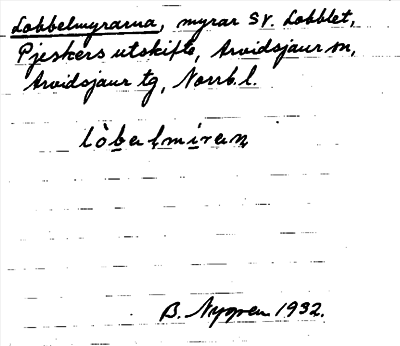 Lobbelmyrarna, myrar SV. Lobblet,
Pjeskers utskifte, Arvidsjaur sn,
Arvidsjaur tg, Norrb. l.
lòbelmiran
B. Nygren 1932.